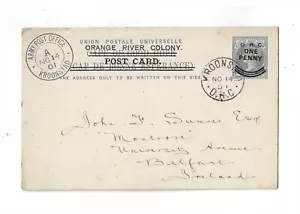 UNION POSTALE UNIVERSELLE
ORANGE RIVER COLONY.
POST CARD.
THE ADDRESS ONLY TO BE WRITTEN ON THIS SIDE
ARMY POST OFFICE
A
NO 14
01
KROONSTAD
O. R. C.
ONE
PENNY
KROONSTAD
NO 14
01
O.R.C.
John F. Sumner Esqr
"Montrose"
University Avenue
Belfast
Ireland